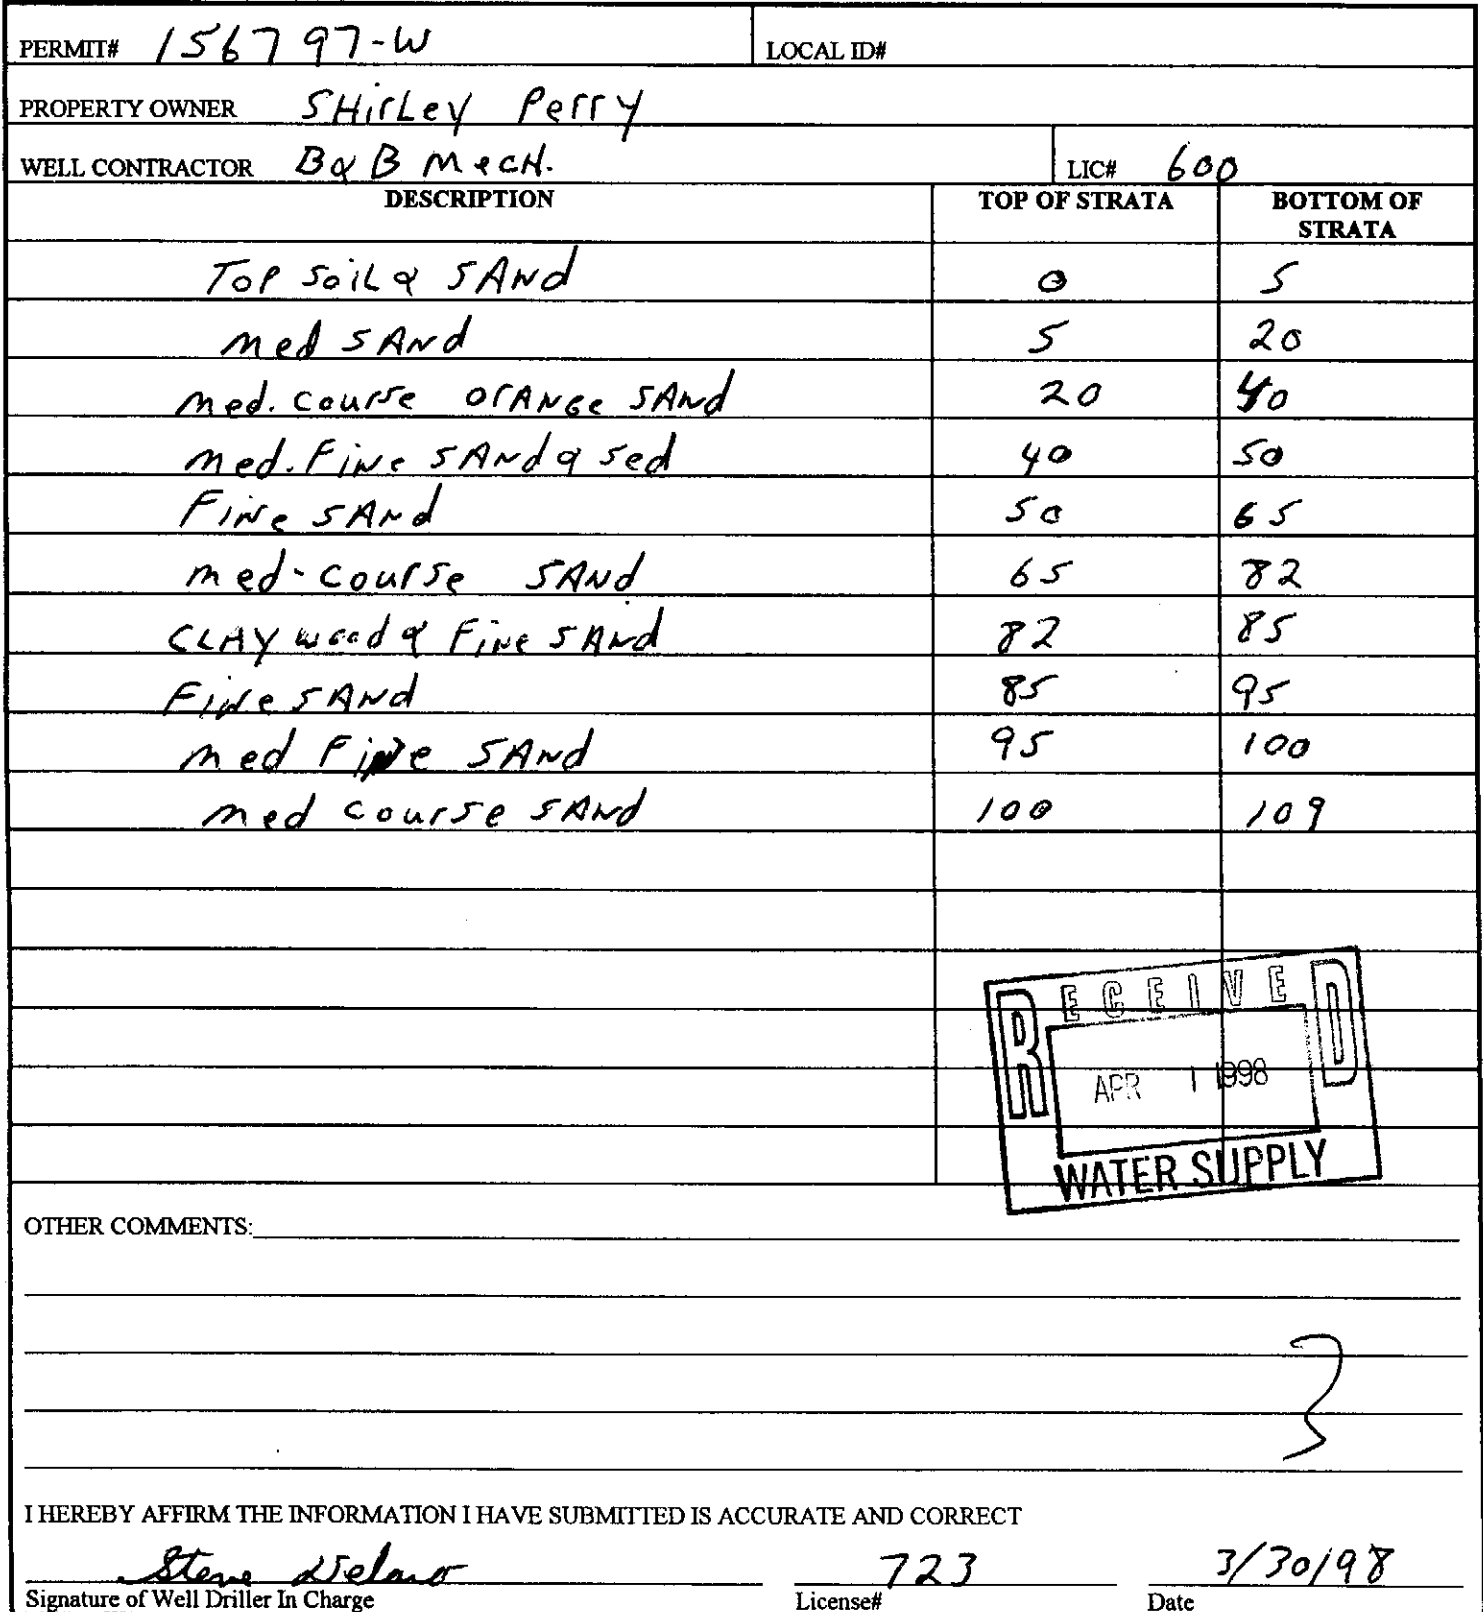 PERMIT# 156797-W LOCAL ID#
PROPERTY OWNER SHirLey Perry
WELL CONTRACTOR B & B MecH. LIC# 600
DESCRIPTION TOP OF STRATA BOTTOM OF STRATA
Top soiL & SANd 0 5
med SANd 5 20
med. course orANGe SANd 20 40
med. FiNe SANd & sed 40 50
FiNe SANd 50 65
med-course SANd 65 82
CLAY wood & FiNe SANd 82 85
FiNe SANd 85 95
med FiNe SANd 95 100
med course SANd 100 109
RECEIVED
APR 1 1998
WATER SUPPLY
OTHER COMMENTS:
3
I HEREBY AFFIRM THE INFORMATION I HAVE SUBMITTED IS ACCURATE AND CORRECT
Steve 723 3/30/98
Signature of Well Driller In Charge License# Date